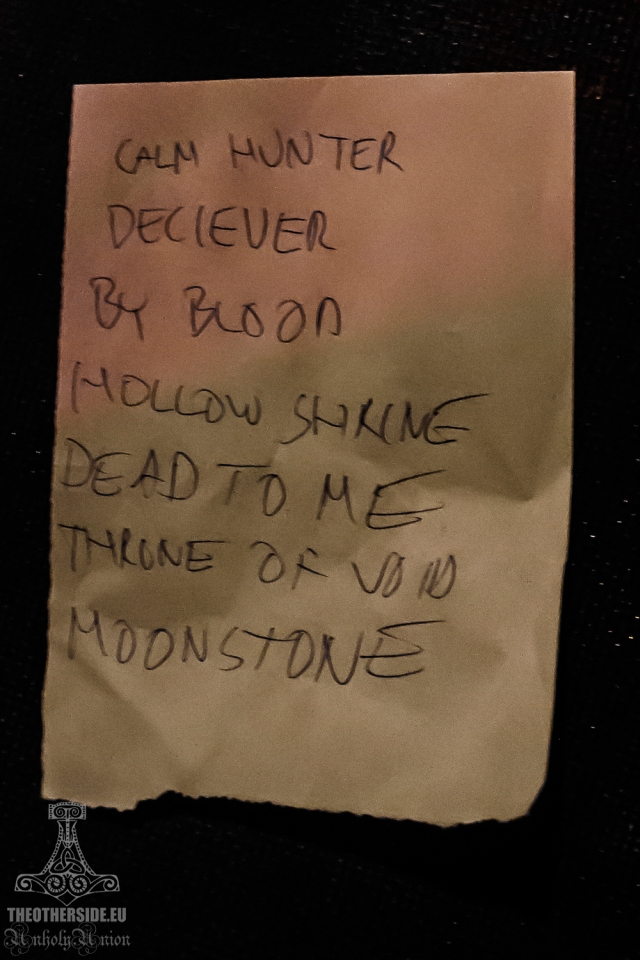 CALM HUNTER
DECIEVER
BY BLOOD
HOLLOW SHRINE
DEAD TO ME
THRONE OF VOID
MOONSTONE
THEOTHERSIDE.EU
UnholyUnion